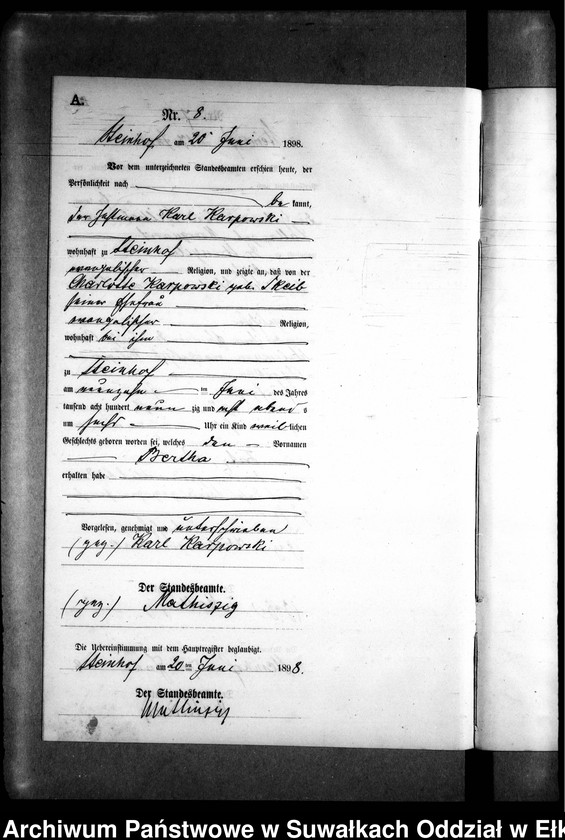 A.
Nr. 8.
Steinhof am 20ten Juni 1898.
Vor dem unterzeichneten Standesbeamten erschien heute, der
Persönlichkeit nach
be kannt,
der Karl Karpowski
wohnhaft zu Steinhof
evangelischer Religion, und zeigte an, daß von der
Charlotte Karpowski geb. Skeib
seiner Ehefrau
evangelischer Religion,
wohnhaft bei ihm
zu Steinhof
am neunzehn ten Juni des Jahres
tausend acht hundert neun zig und acht abend s
um sechs Uhr ein Kind weib lichen
Geschlechts geboren worden sei, welches den Vornamen
Bertha
erhalten habe
Vorgelesen, genehmigt und unterschrieben
(gez.) Karl Karpowski
Der Standesbeamte.
(gez.) Mathiszig
Die Uebereinstimmung mit dem Hauptregister beglaubigt.
Steinhof am 20 ten Juni 1898.
Der Standesbeamte.
Archiwum Państwowe w Suwałkach Oddział w Ełk